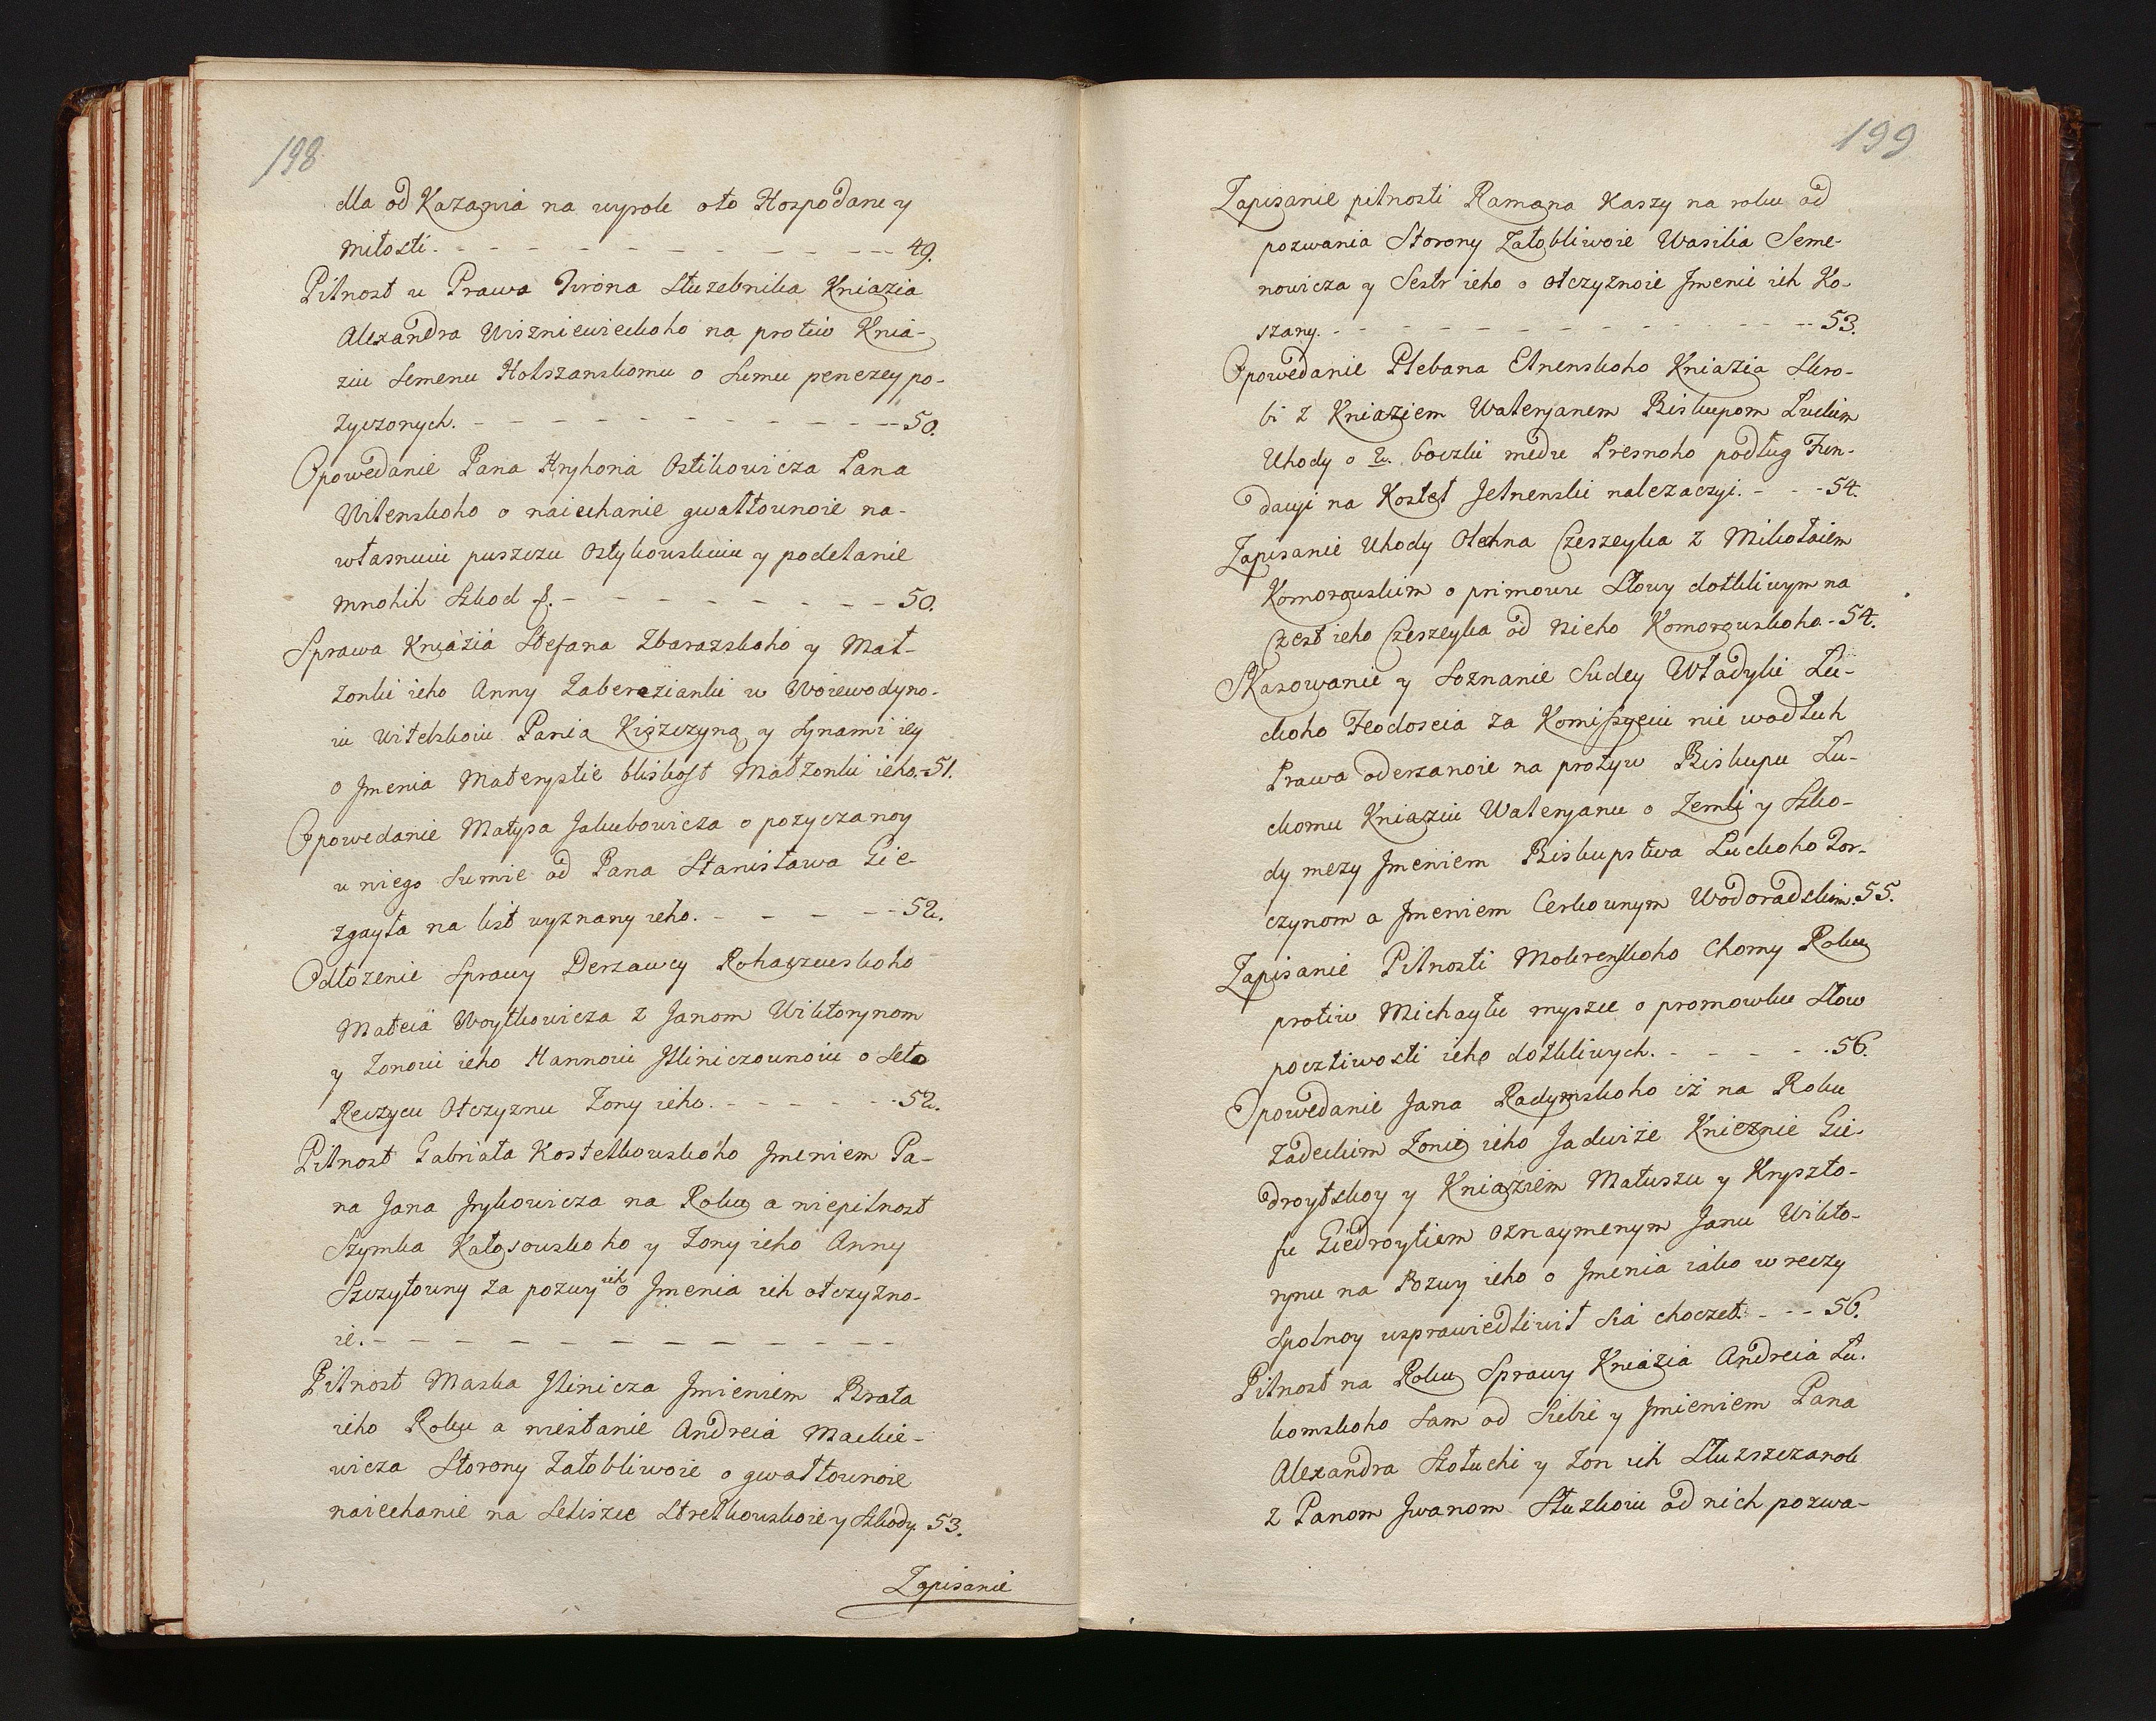 198
dla od Kazania na wyrok oto Hospodarey
Miłosti. - - - - - - - - - - 49.
Pilnost u Prawa Tirona Służebnika Kniazia
Alexandra Wiszniewieckoho na protiw Knia-
ziu Semenu Holszanskomu o Sumu penezey po-
zyczonych. - - - - - - - - - - 50.
Opowedanie Pana Hryhoria Ostikowicza Pana
Wilenskoho o naiechanie gwałtownoie na-
własnuiu puszczu Ostykowskuiu y podelanie
mnohih Szkod &. - - - - - - - - 50.
Sprawa Kniazia Stefana Zbarazskoho y Mał-
zonki ieho Anny Zaberezianki w Woiewodyno-
iu Witebskoiu Panią Kiszczyną y Synami iey
o Jmenia Materystie bliskost Małzonki ieho.-51.
Opowedanie Matysa Jakubowicza o pozyczanoy
u niego Sumie od Pana Stanisława Gie-
zgayła na list wyznany ieho. - - - - 52.
Odłozenie Sprawy Derzawcy Rohaczewskoho
Mateia Woytkowicza z Janom Wiktorynom
y Zonoiu ieho Hannoiu Jliniczownoiu o Seło
Reczycu Otczyznu Zony ieho. - - - - - 52.
Pilnost Gabriała Kostelkowskoho Jmeniem Pa-
na Jana Jrykowicza na Roku a niepilnost
Szymka Kałosowskoho y Zony ieho Anny
Szczytowny za pozwy ich o Jmenia ich otczyzno-
ie. - - - - - - - - - -
Pilnost Maska Jlinicza Jmieniem Brata
ieho Roku a niestanie Andreia Mackie-
wicza Storony Załobliwoie o gwałtownoie
naiechanie na Seliszcze Stretkowskoie y Szkody 53.
Zapisanie
199
Zapisanie pilnosti Ramana Kaszy na roku od
pozwania Storony Załobliwoie Wasilia Seme-
nowicza y Sestr ieho o otczyznoie Jmenie ich Ko-
szany. - - - - - - - - - - 53.
Opowedanie Plebana Elnenskoho Kniazia Skro-
bi z Kniaziem Waleryanem Biskupom Luckim
Uhody o 2. boczki medu Presnoho podług Fun-
dacyi na Kosteł Jelnenski nalezaczyi. - - - 54.
Zapisanie Uhody Olechna Czeszeyka z Mikołaiem
Komorowskim o primowu Słowy dotkliwym na
Czest ieho Czeszeyka od Nieho Komorowskoho.-54.
Skasowanie y Soznanie Sudey Władyki Lu-
ckoho Fłodoseia za Komissyeiu nie wodłuh
Prawa oderzanoie na protyw Biskupu Lu-
ckomu Kniaziu Waleryanu o Zemli y Szko-
dy mezy Jmeniem Biskupstwa Luckoho Tor-
czynom a Jmeniem Cerkownym Wodoradskim.55.
Zapisanie Pilnosti Mokrenskoho Chomy Roku
protiw Michayłu myszce o promowku Słow
pocztiwosti ieho dotkliwych. - - - - - 56.
Opowedanie Jana Radymskoho iż na Roku
Zadeckim Zonie ieho Jadwize Knieznie Gie-
droytskoy y Kniaziem Matuszu y Kryszto-
fu Giedroytiem oznaymenym Janu Wikto-
rynu na Pozwy ieho o Jmenia iako w reczy
Spolnoy usprawiedliwit Sia choczet. - - - 56.
Pilnost na Roku Sprawy Kniazia Andreia Lu-
komskoho Sam od Siebie y Jmieniem Pana
Alexandra Sołuchi y Zon ich Słuzszczanok
z Panom Jwanom Słuzkoiu od nich pozwa-